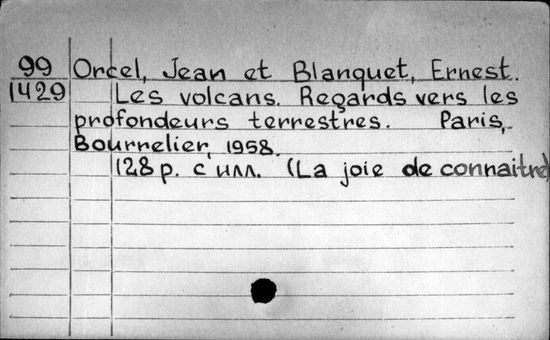 99 Orcel, Jean et Blanquet, Ernest.
1429 Les volcans. Regards vers les
profondeurs terrestres. Paris,
Bourrelier, 1958.
128 p. с илл. (La joie de connaitre)